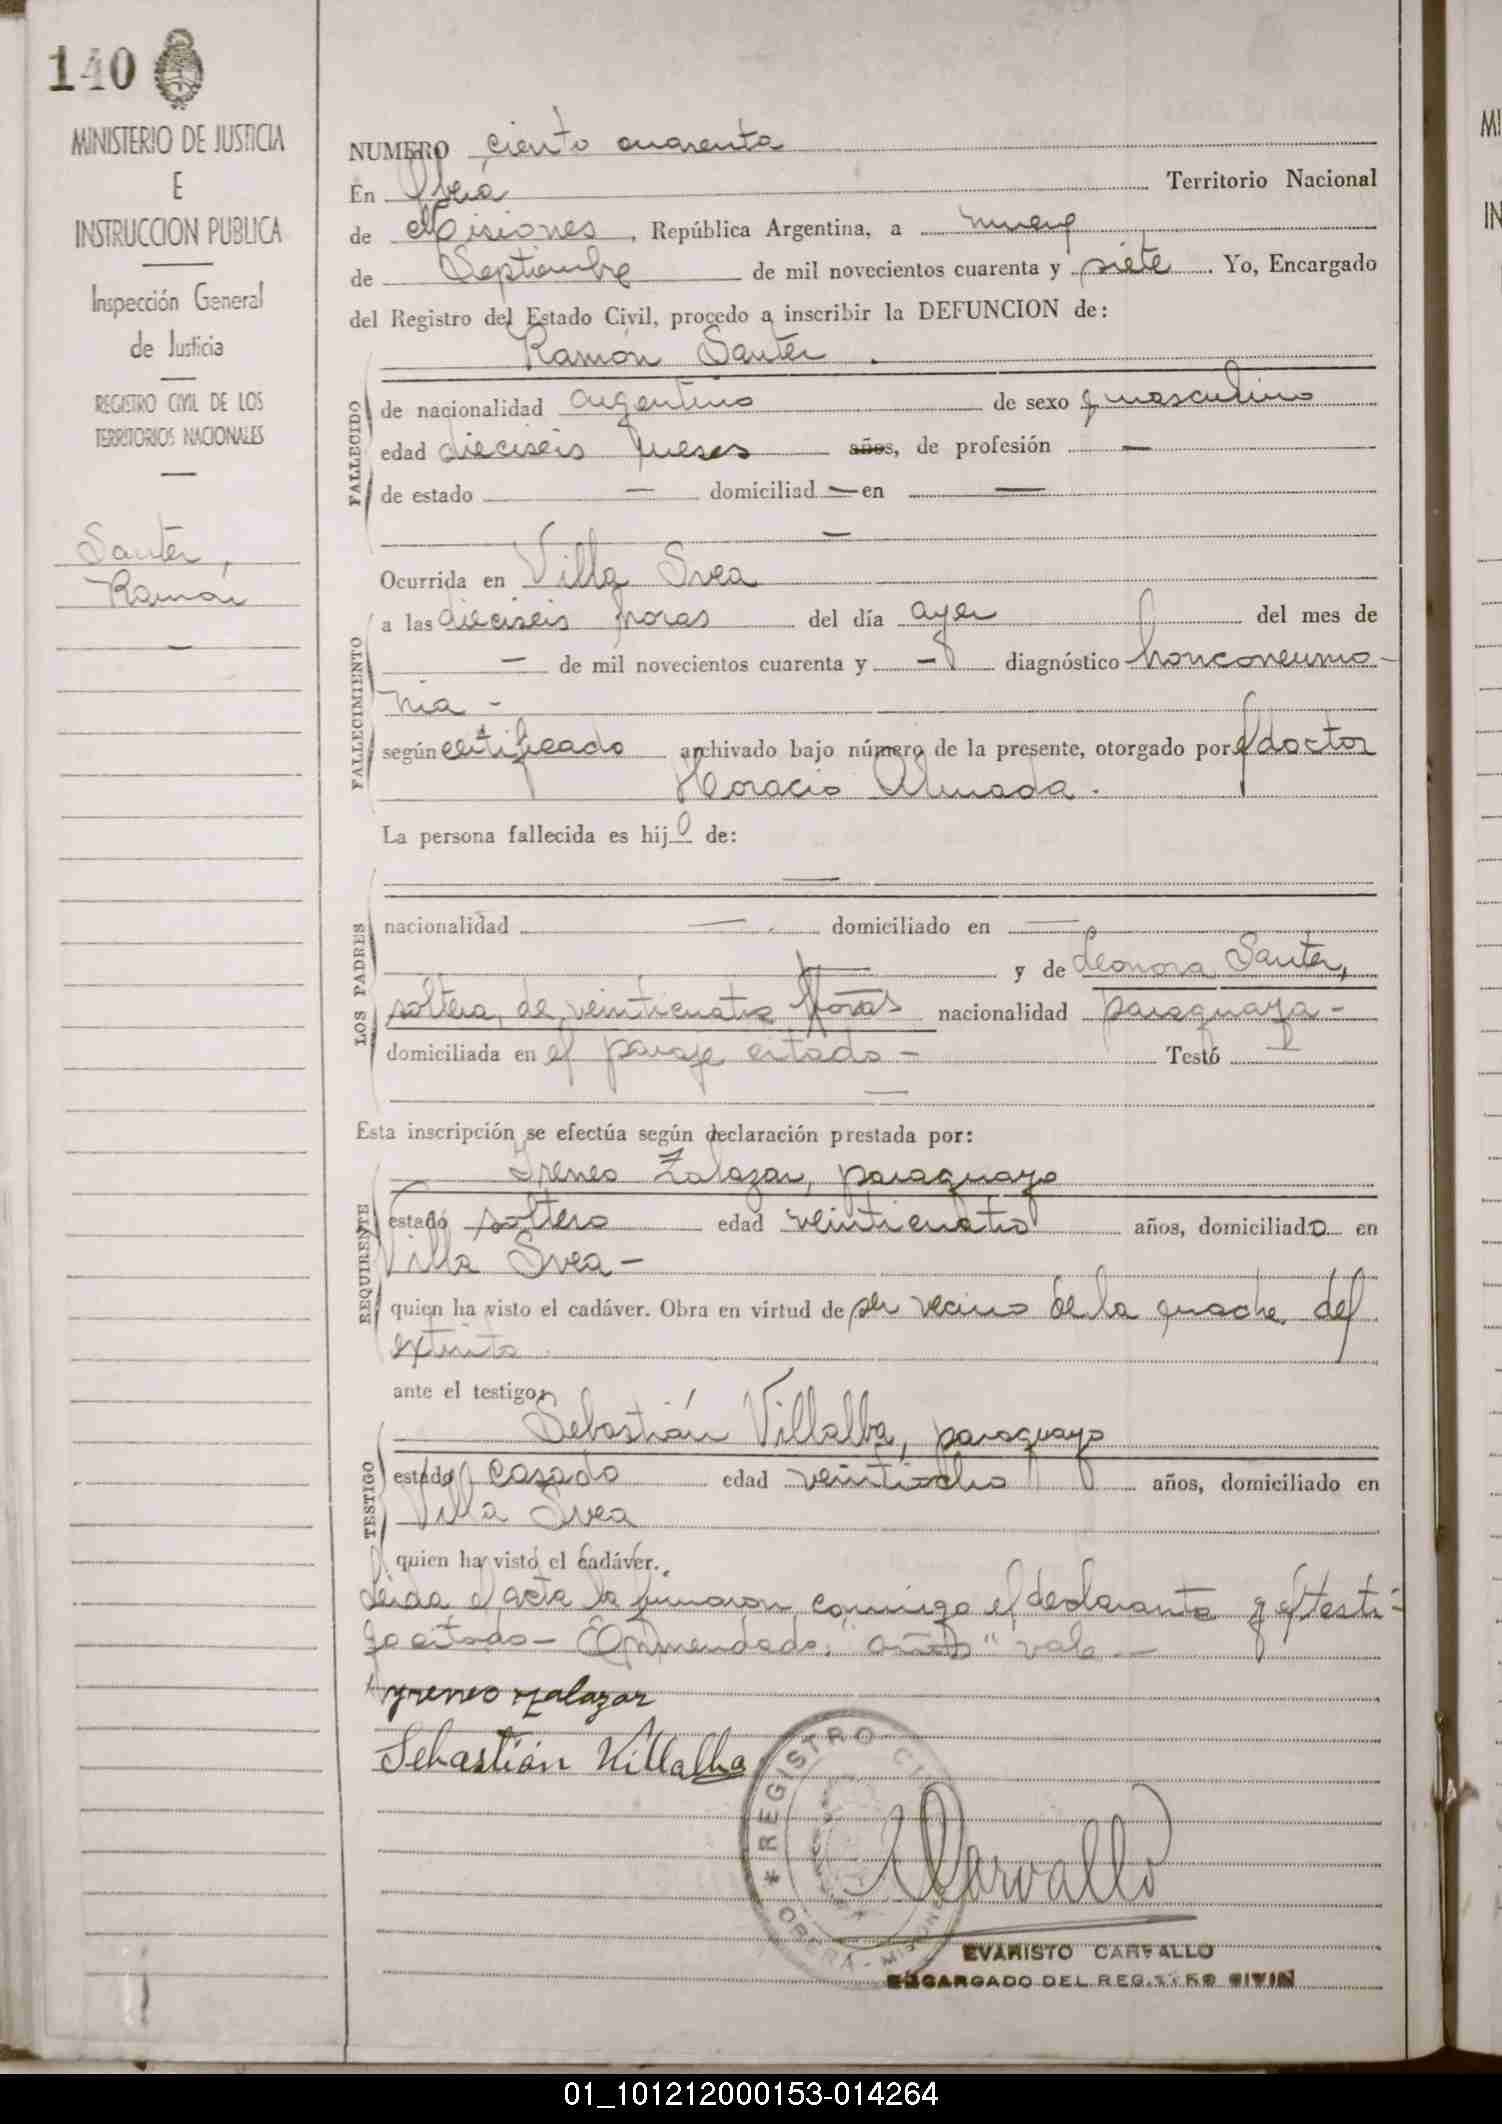 140
MINISTERIO DE JUSTICIA
E
INSTRUCCION PUBLICA
Inspección General
de Justicia
REGISTRO CIVIL DE LOS
TERRITORIOS NACIONALES
Santer,
Ramón
NUMERO ciento cuarenta
En Oberá Territorio Nacional
de Misiones, República Argentina, a nueve
de Septiembre de mil novecientos cuarenta y siete. Yo, Encargado
del Registro del Estado Civil, procedo a inscribir la DEFUNCION de:
Ramón Santer.
FALLECIDO
de nacionalidad argentino de sexo masculino
edad dieciseis meses años, de profesión —
de estado — domiciliad — en —
—
FALLECIMIENTO
Ocurrida en Villa Svea
a las dieciseis horas del día ayer del mes de
— de mil novecientos cuarenta y — diagnóstico bronconeumo-
nia -
según certificado archivado bajo número de la presente, otorgado por el doctor
Horacio Almada.
La persona fallecida es hijo de:
—
LOS PADRES
nacionalidad — domiciliado en —
— y de Leonora Santer,
soltera, de veinticuatro años nacionalidad paraguaya -
domiciliada en el paraje citado - Testó —
—
Esta inscripción se efectúa según declaración prestada por:
REQUIRENTE
Ireneo Zalazar, paraguayo
estado soltero edad veinticuatro años, domiciliado en
Villa Svea -
quien ha visto el cadáver. Obra en virtud de ser vecino de la madre del
extinto.
ante el testigo:
TESTIGO
Sebastián Villalba, paraguayo
estado casado edad veintiocho años, domiciliado en
Villa Svea
quien ha visto el cadáver.
Leida el acta la firmaron conmigo el declarante y el testi-
go citado - Enmendado: "años" vale -
Yreneo Zalazar
Sebastián Villalba
REGISTRO CIVIL
OBERA - MISIONES
Carvallo
EVARISTO CARVALLO
ENCARGADO DEL REGISTRO CIVIL
01_101212000153-014264